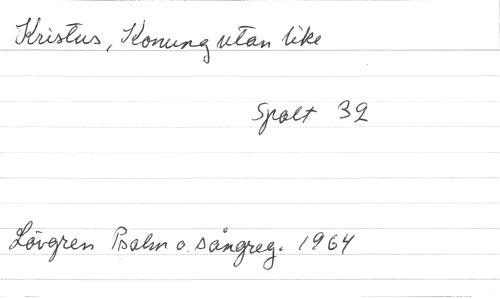 Kristus, Konung utan like
Spalt 32
Lövgren Psalm o. sångreg. 1964